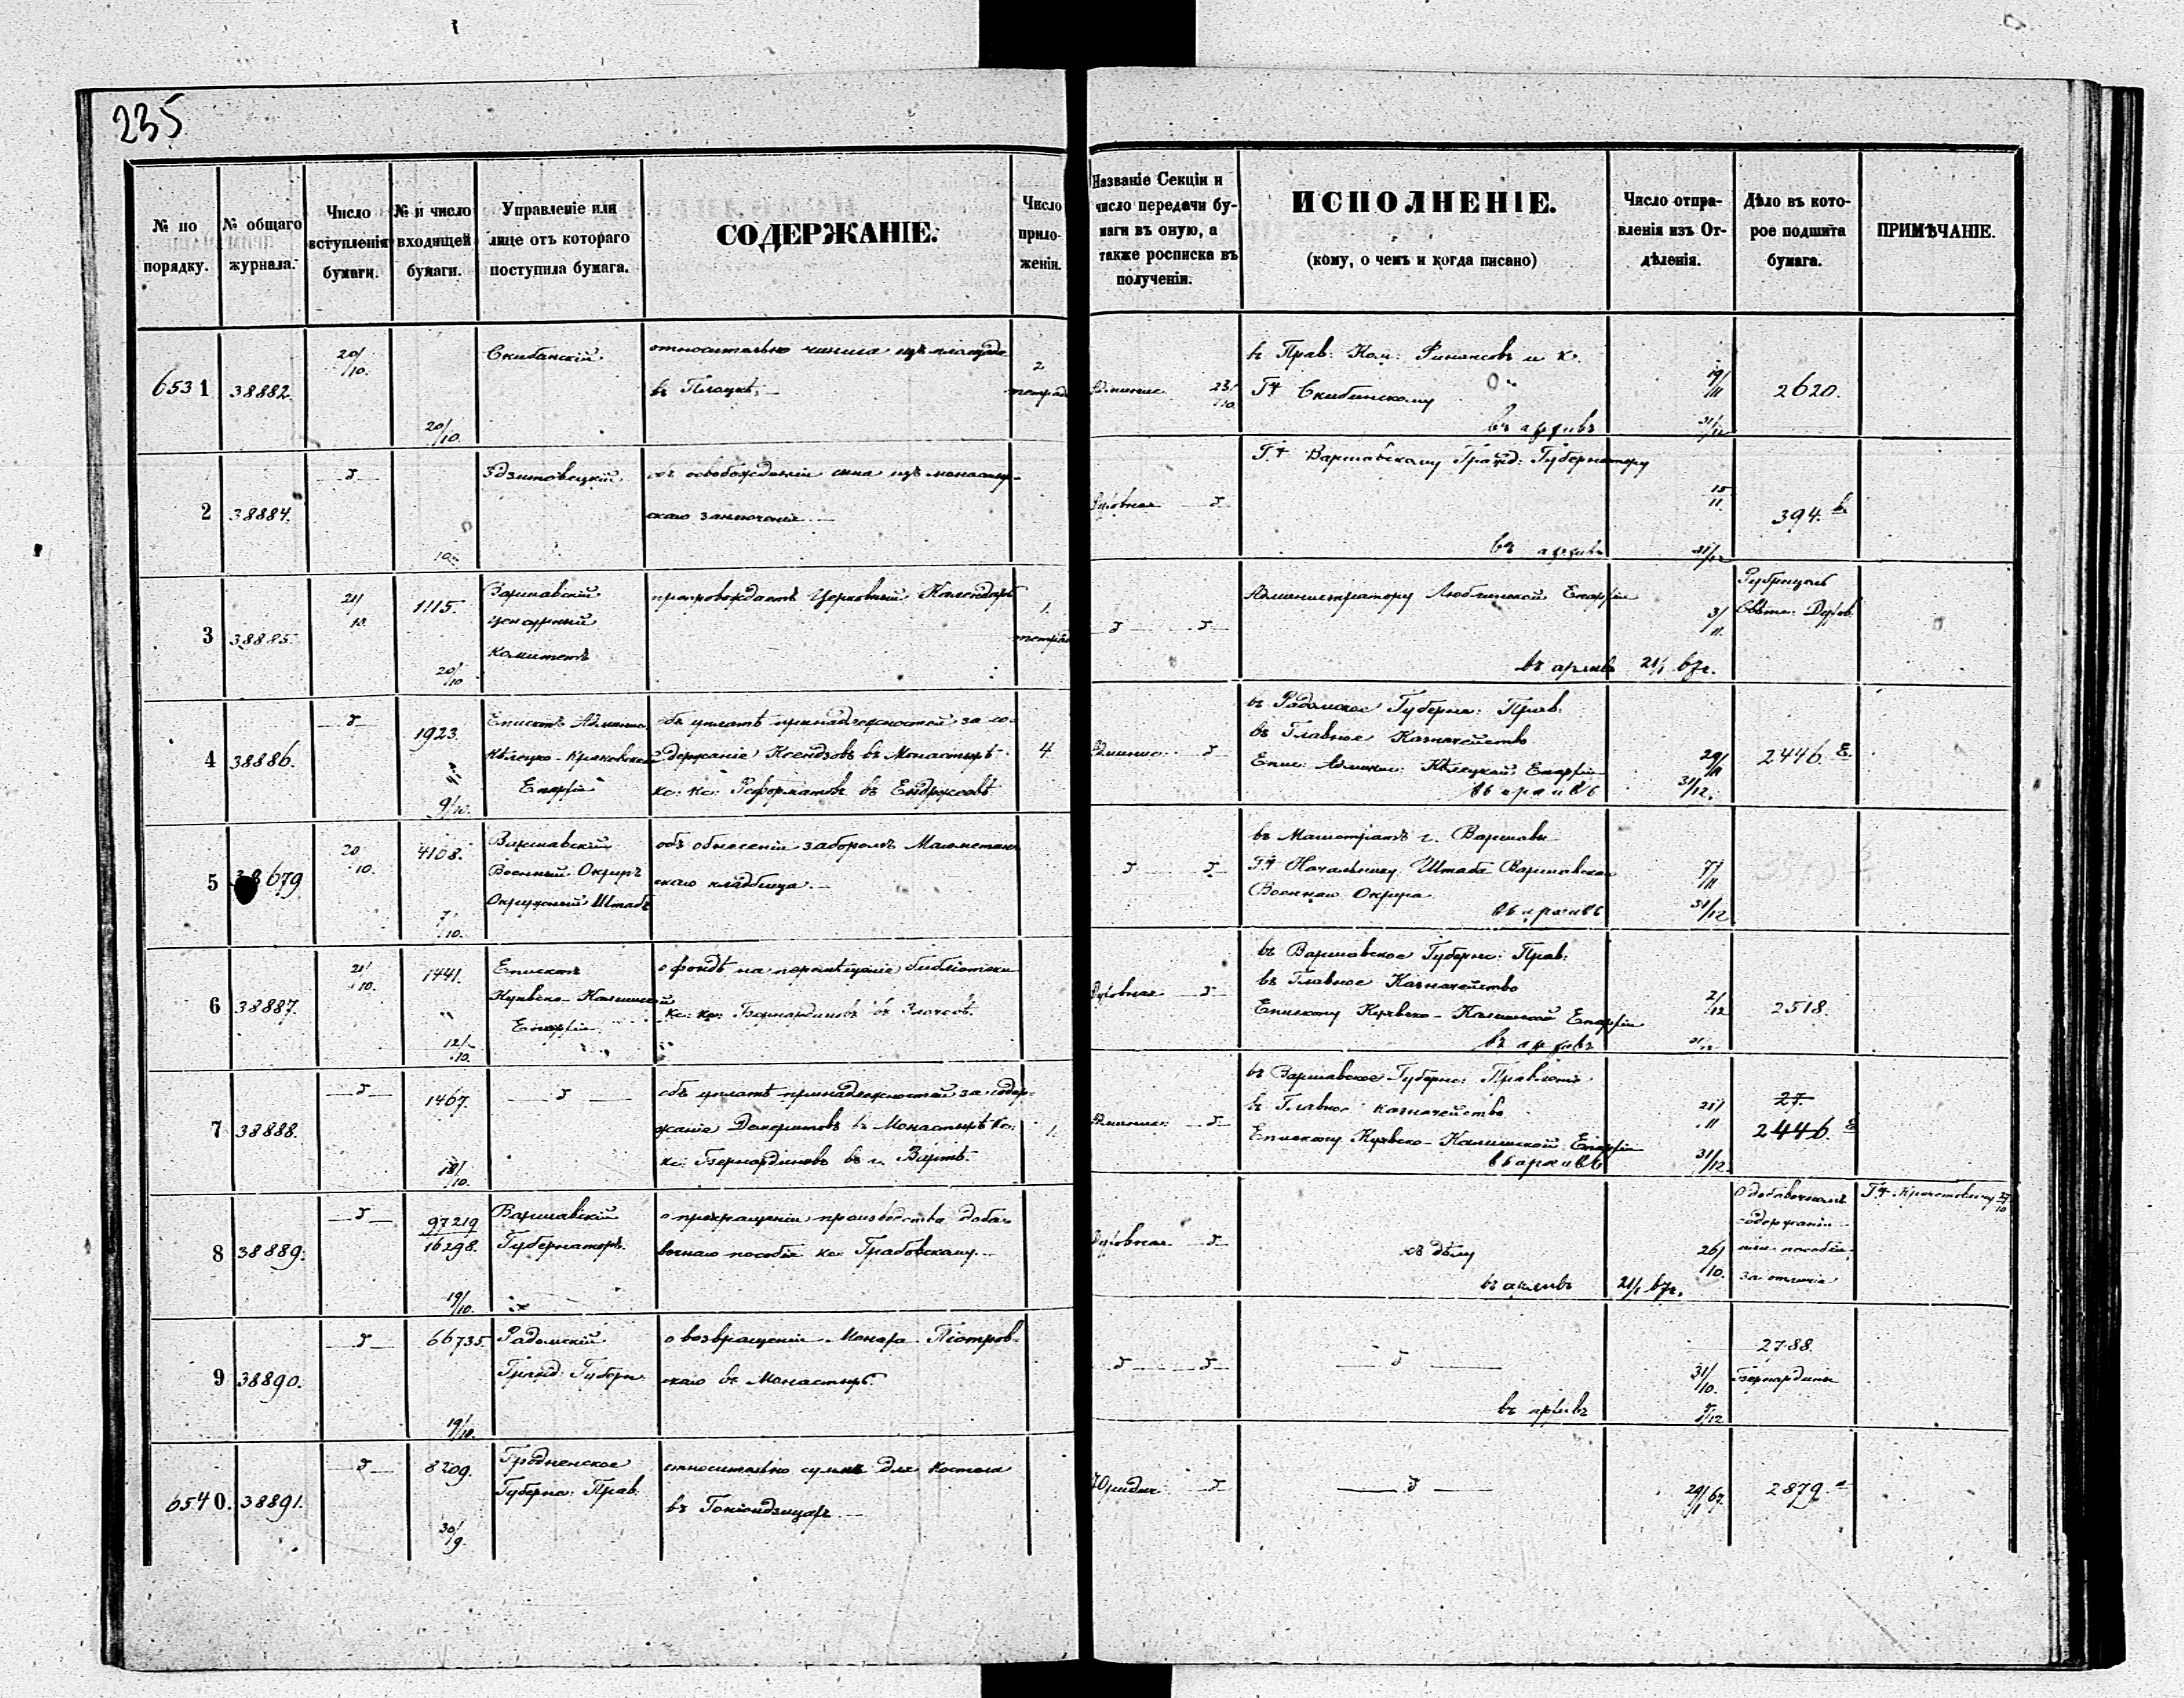 235
№ по порядку.
№ общаго журнала.
Число вступленія бумаги.
№ и число входящей бумаги.
Управленіе или лице отъ котораго поступила бумага.
СОДЕРЖАНІЕ.
Число приложеній.
Названіе Секціи и число передачи бумаги въ оную, а также росписка въ полученіи.
ИСПОЛНЕНІЕ.
(кому, о чемъ и когда писано)
Число отправленія изъ Отдѣленія.
Дѣло въ которое подшита бумага.
ПРИМѢЧАНІЕ.
6531 38882. 20/10. 20/10.
относительно чинша изъ
въ Плоцкѣ. 2
23/10.
въ Прав: Ком: Финансовъ
Скибинскому 19/11
въ архивъ 31/12
2620.
2 38884.
объ освобожденіи сына изъ монастыр-
скаго заключенія
Духовная
Варшавскому Гражд: Губернатору
15/11
въ архивъ 31/12
394.
3 38885. 21/10 1115. 20/10
Варшавскій
цензурный
комитетъ
препровождаетъ Церковный Календарь 1.
Администратору Люблинской Епархіи
3/11.
въ архивъ 21/1 67г.
4 38886. 1923. 9/10.
Епископъ Админис.
Кѣлецко-Краковской
Епархіи
объ уплатѣ принадлежностей за со-
держаніе Ксендзовъ въ Монастырѣ
кс: кс: Реформатовъ въ Ендржеовѣ 4
въ Радомское Губерн: Прав:
въ Главное Казначейство
Епис: Админис: Кѣлецкой Епархіи
29/11
въ архивъ 31/12.
2446
5 679 20/10. 4108. 7/10.
Варшавскій
Военный Округъ
Окружный Штабъ
объ обнесеніи заборомъ Магометан-
скаго кладбища.
въ Магистратъ г. Варшавы
Начальнику Штаба Варшавскаго
Военнаго Округа
7/11
въ архивъ 31/12
6 38887. 21/10. 1441. 12/10.
Епископъ
Куявско-Калишской
Епархіи
о фондѣ на перемѣщеніе библіотеки
кс: кс: Бернардиновъ въ
Духовная
въ Варшавское Губернс: Прав:
въ Главное Казначейство
Епископу Куявско-Калишской Епархіи
2/12
въ архивъ
2518.
7 38888. 1467. 18/10.
объ уплатѣ принадлежностей за содер-
жаніе въ Монастырѣ кс:
кс: Бернардиновъ въ г. Вартѣ. 1.
въ Варшавское Губернс: Правленіе
въ Главное казначейство
Епископу Куявско-Калишской Епархіи
въ архивъ 31/12
27.
2446.
8 38889. 97219/16298. 19/10.
Варшавскій
Губернаторъ.
о прекращеніи производства доба-
вочнаго пособія кс: Грабовскому.
Духовная
къ дѣлу 26/10.
въ архивъ 21/1 67г.
О добавочномъ
содержаніи
или пособіи
за отличіе
9 38890. 66735. 19/10.
Радомскій
Гражд: Губерн.
о возвращеніи Монаха Піотров-
скаго въ Монастырь.
31/10.
въ архивъ
2788.
Бернардины
6540. 38891. 8209. 30/9.
Гродненское
Губернс: Прав.
относительно суммъ для костела
въ Гоніондзицахъ
Юридич.
29/1 67.
2879.